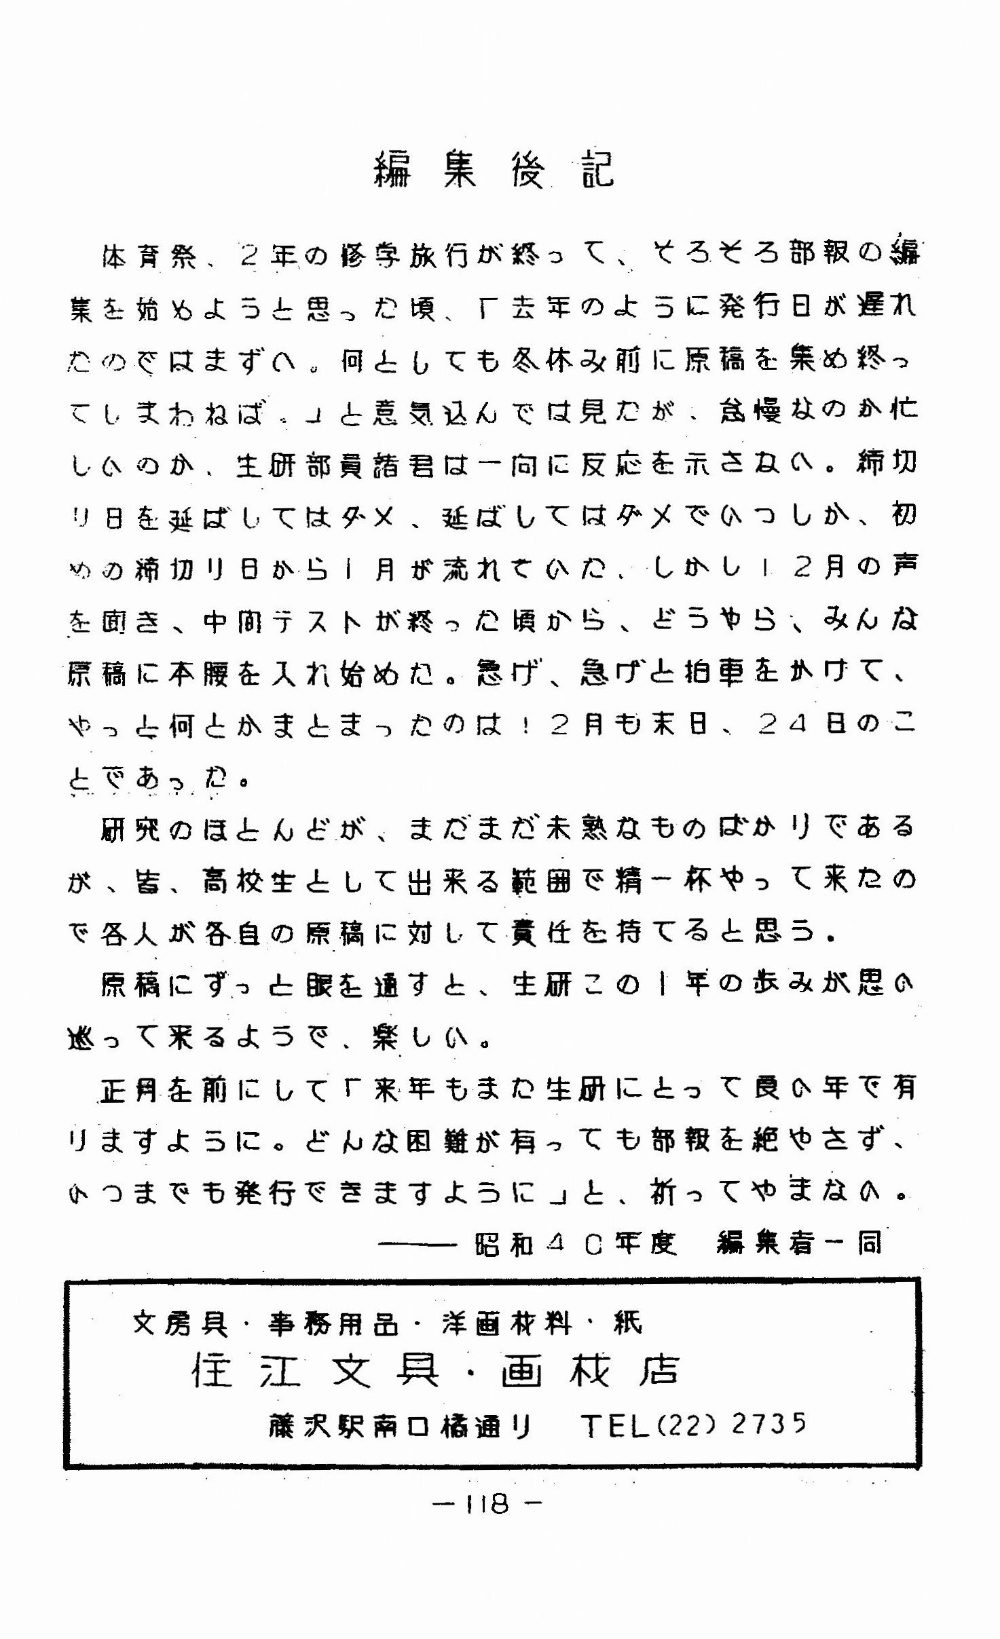 編集後記
体育祭、2年の修学旅行が終って、そろそろ部報の編
集を始めようと思った頃、「去年のように発行日が遅れ
たのではまずい。何としても冬休み前に原稿を集め終っ
てしまわねば。」と意気込んでは見たが、怠慢なのか忙
しいのか、生研部員諸君は一向に反応を示さない。締切
り日を延ばしてはダメ、延ばしてはダメでいつしか、初
めの締切り日から1月が流れていた、しかし12月の声
を聞き、中間テストが終った頃から、どうやら、みんな
原稿に本腰を入れ始めた。急げ、急げと拍車をかけて、
やっと何とかまとまったのは12月も末日、24日のこ
とであった。
研究のほとんどが、まだまだ未熟なものばかりである
が、皆、高校生として出来る範囲で精一杯やって来たの
で各人が各自の原稿に対して責任を持てると思う。
原稿にずっと眼を通すと、生研この1年の歩みが思い
巡って来るようで、楽しい。
正月を前にして「来年もまた生研にとって良い年で有
りますように。どんな困難が有っても部報を絶やさず、
いつまでも発行できますように」と、祈ってやまない。
——昭和40年度 編集者一同
文房具・事務用品・洋画材料・紙
住江文具・画材店
藤沢駅南口橘通り TEL(22)2735
—118—